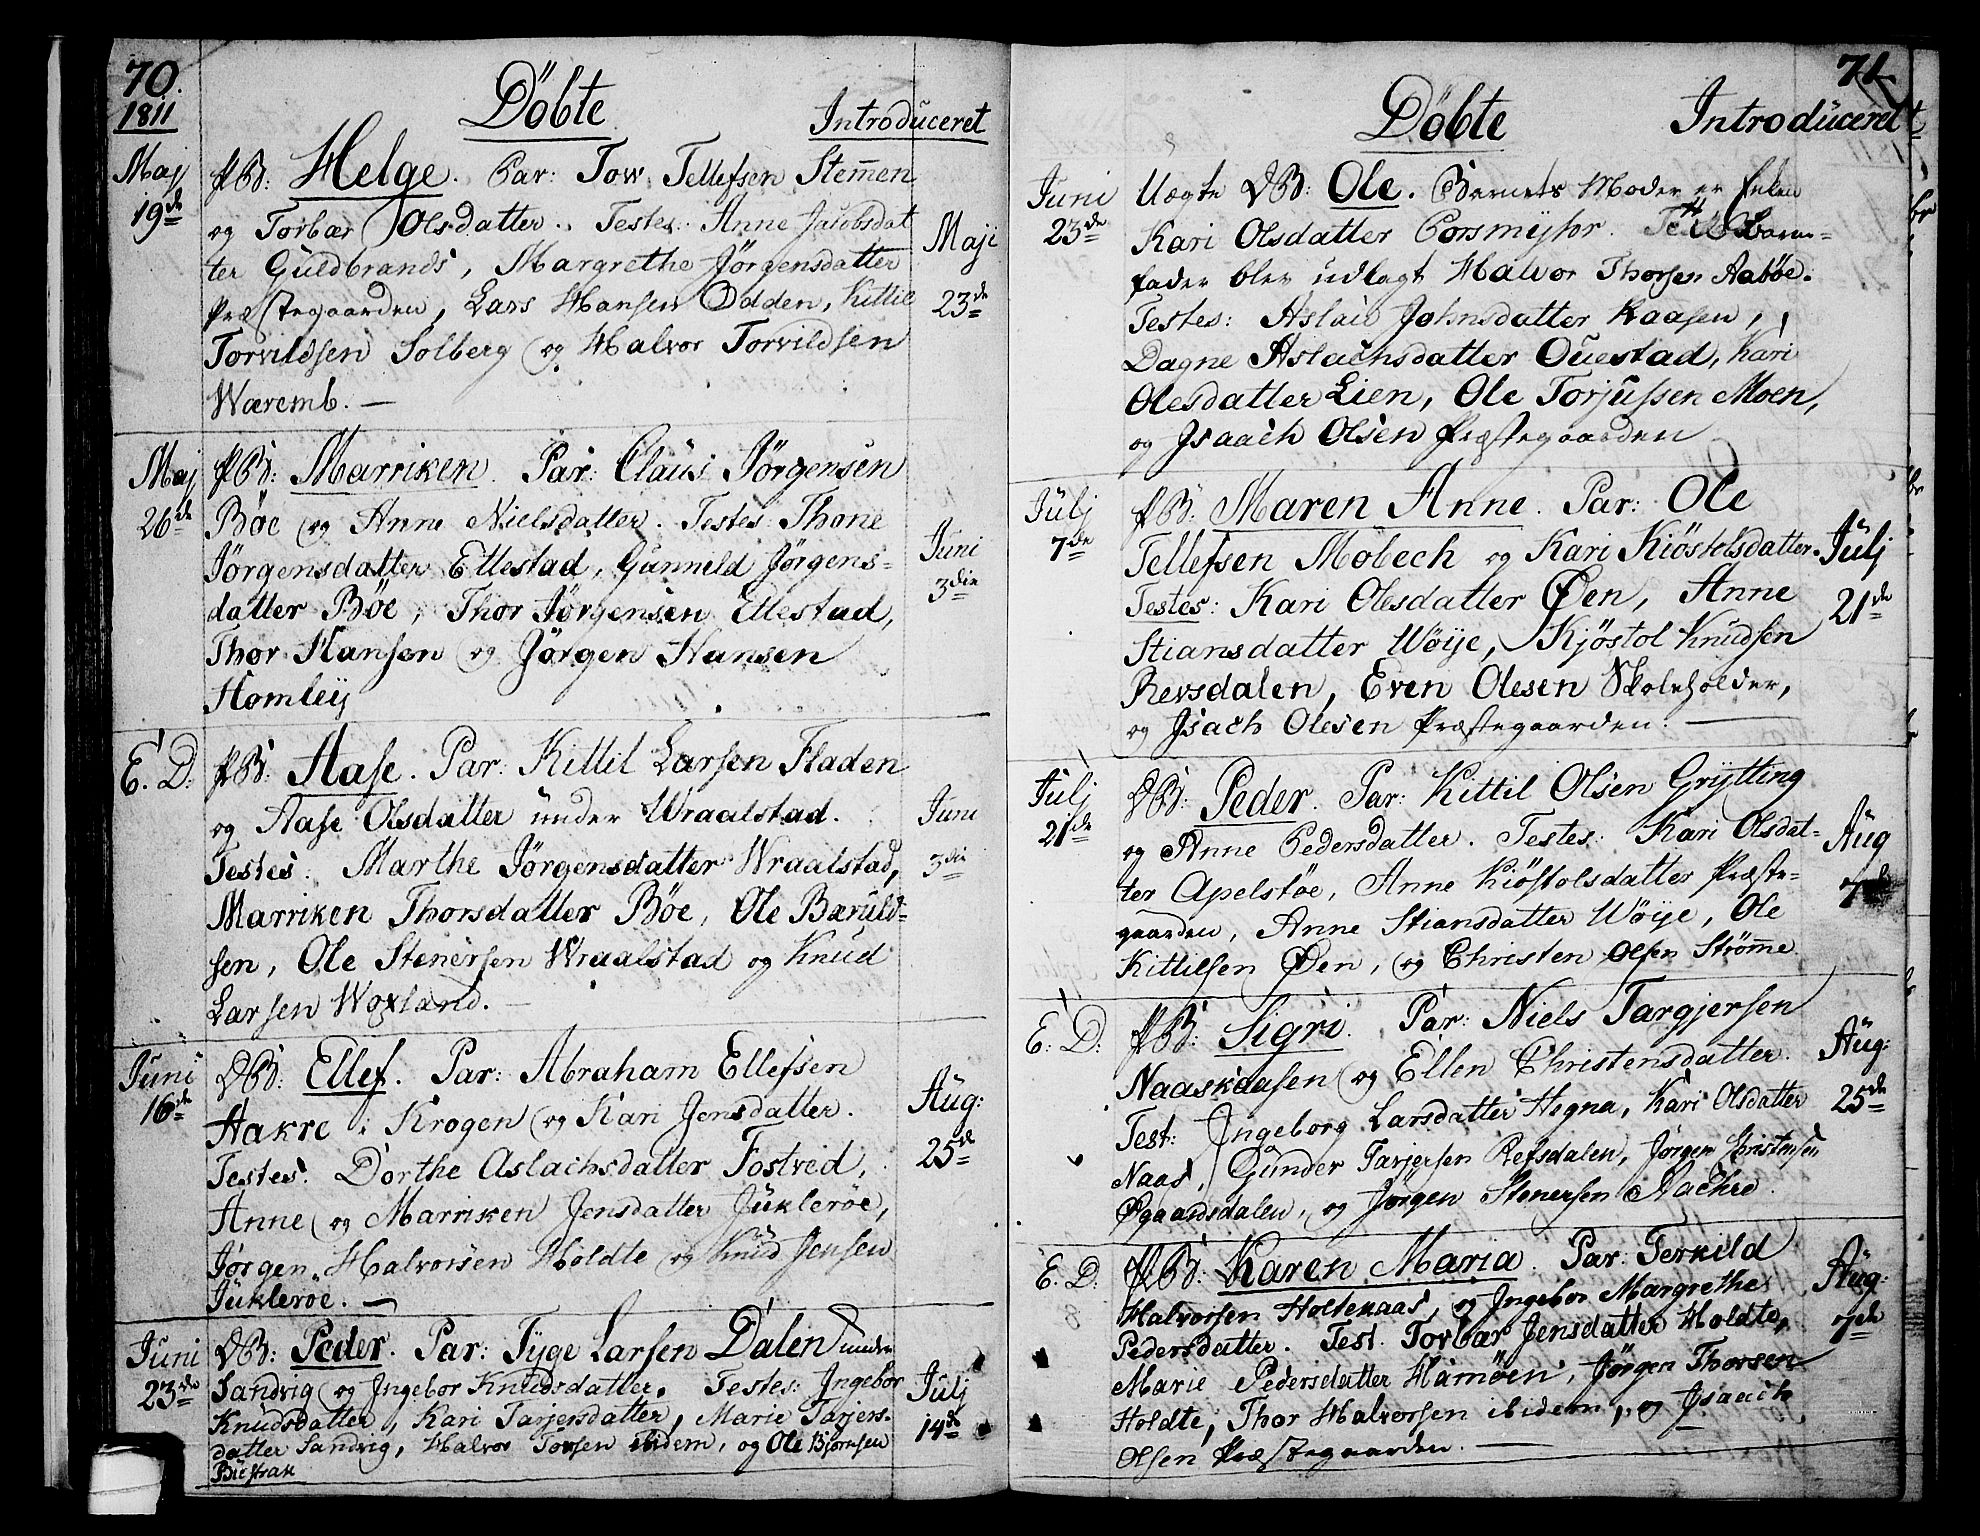 70.
1811
Döbte
Introduceret
Maji 19de
PB: Helge. Par: Tow Tellefsen Stem̅en
og Torbær Olsdatter. Testes: Anne Jacobsdat
ter Guldbrands, Margrethe Jörgensdatter
Præstegaarden, Lars Hansen Odden, Kittil
Torvildsen Solberg og Halvor Torvildsen
Wæremb. —
Maji 23de
Maj 26de
PB: Marriken. Par: Claus Jörgensen
Böe og Anne Nielsdatter. Testes: Thone
Jörgensdatter Ellestad, Gunnild Jörgens=
datter Böe, Thor Jörgensen Ellestad,
Thor Hansen og Jörgen Hansen
Homleÿ
Juni 3die
E. D.
PB: Aase. Par: Kittil Larsen Fladen
og Aase Olsdatter under Wraalstad.
Testes: Marthe Jörgensdatter Wraalstad,
Marriken Thorsdatter Böe, Ole Bæruld=
sen, Ole Stenersen Wraalstad og Knud
Larsen Woxland. —
Juni 3die
Juni 16de
DB: Ellef. Par: Abraham Ellefsen
Aakre i Krogen og Kari Jensdatter.
Testes: Dorthe Aslachsdatter Fostved,
Anne og Marriken Jensdatter Jükleröe,
Jörgen Halvorsen Holdte og Knud Jensen
Jükleröe. —
Aug: 25de
Juni 23de
DB: Peder. Par: Tyge Larsen Dalen under
Sandvig og Ingebor Knudsdatter. Testes: Ingebor
Knudsdatter, Kari Tarjersdatter, Marie Tarjers-
datter Sandvig, Halvor Torsen ibidem, og Ole Bjørnsen
Biestrak
Julj 14de
71
Döbte
Introduceret
Juni 23de
Uægte DB: Ole. Barnets Moder er Enken
Kari Olsdatter Porsmyhr. Til Barne=
fader blev udlagt Halvor Thorsen Aaböe.
Testes: Aslau Johnsdatter Kaasen,
Dagne Aslachsdatter Ouestad, Kari
Olesdatter Lien, Ole Torjussen Moen,
og Isaach Olsen Præstegaarden
Julj 7de
PB: Maren Anne. Par: Ole
Tellefsen Mobech og Kari Kiöstolsdatter.
Testes: Kari Olesdatter Øen, Anne
Stiansdatter Wöije, Kjöstol Knudsen
Revsdalen, Even Olesen Skoleholder,
og Isach Olesen Præstegaarden. —
Julj 21de
Julj 21de
DB: Peder. Par: Kittil Olsen Grytting
og Anne Pedersdatter. Testes: Kari Olsdat=
ter Apelstöe, Anne Kiöstolsdatter Præste=
gaarden, Anne Stiansdatter Wöije, Ole
Kittilsen Øen, og Christen Olsen Ström̅e
Aug 7de
E. D:
PB: Sigri. Par: Niels Targjersen
Naaskaasen og Ellen Christensdatter.
Test: Ingeborg Larsdatter Hegna, Kari Olsdatter
Naas, Gunder Tarjersen Refsdalen, Jörgen Christensen
Øgaardsdalen, og Jörgen Stenersen Aachre.
Aug: 25de
E. D:
PB: Karen Maria. Par: Terkild
Halvorsen Holtenaas, og Ingebor Margrethe
Pedersdatter. Test. Torbær Jensdatter Holdte,
Marie Pedersdatter Hamöen, Jörgen Thorsen
Holdte, Thor Halvorsen ibidem, og Isaach
Olsen Præstegaarden. —
Aug: 7de